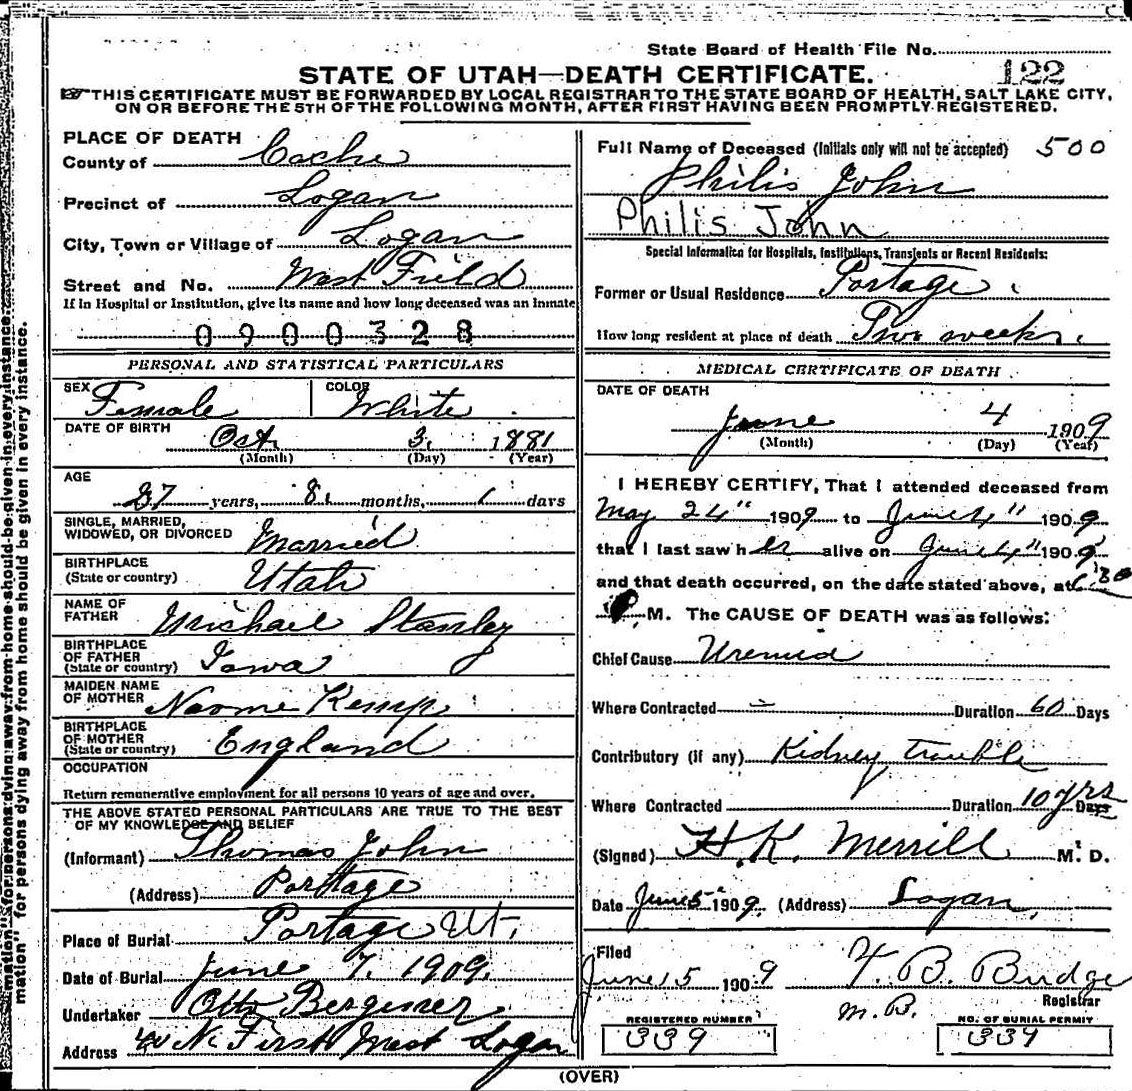 State Board of Health File No.
122
STATE OF UTAH—DEATH CERTIFICATE.
THIS CERTIFICATE MUST BE FORWARDED BY LOCAL REGISTRAR TO THE STATE BOARD OF HEALTH, SALT LAKE CITY,
ON OR BEFORE THE 5TH OF THE FOLLOWING MONTH, AFTER FIRST HAVING BEEN PROMPTLY REGISTERED.
PLACE OF DEATH
County of Cache
Precinct of Logan
City, Town or Village of Logan
Street and No. West Field
If in Hospital or Institution, give its name and how long deceased was an inmate
0900328
PERSONAL AND STATISTICAL PARTICULARS
SEX Female COLOR White
DATE OF BIRTH Oct. 3, 1881
(Month) (Day) (Year)
AGE
27 years, 8 months, 1 days
SINGLE, MARRIED,
WIDOWED, OR DIVORCED Married
BIRTHPLACE
(State or country) Utah
NAME OF
FATHER Michael Stanley
BIRTHPLACE
OF FATHER
(State or country) Iowa
MAIDEN NAME
OF MOTHER Naome Kemp
BIRTHPLACE
OF MOTHER
(State or country) England
OCCUPATION
Return remunerative employment for all persons 10 years of age and over.
THE ABOVE STATED PERSONAL PARTICULARS ARE TRUE TO THE BEST
OF MY KNOWLEDGE AND BELIEF
(Informant) Thomas John
(Address) Portage
Place of Burial Portage Ut.
Date of Burial June 7, 1909.
Undertaker Otto
Address N. First West Logan
Full Name of Deceased (Initials only will not be accepted) 500
Philis John
Philis John
Special Information for Hospitals, Institutions, Transients or Recent Residents:
Former or Usual Residence Portage
How long resident at place of death Two weeks.
MEDICAL CERTIFICATE OF DEATH
DATE OF DEATH
June 4 1909
(Month) (Day) (Year)
I HEREBY CERTIFY, That I attended deceased from
May 24" 1909 to June 4" 1909
that I last saw her alive on June 4" 1909
and that death occurred, on the date stated above, at
M. The CAUSE OF DEATH was as follows:
Chief Cause Uremia
Where Contracted — Duration 60 Days
Contributory (if any) Kidney trouble
Where Contracted Duration 10 yrs Days
(Signed) H. K. Merrill M. D.
Date June 5" 1909 (Address) Logan,
Filed
June 5 1909 B. Budge
Registrar
REGISTERED NUMBER NO. OF BURIAL PERMIT
339 334
(OVER)
mation" for persons dying away from home should be given in every instance.